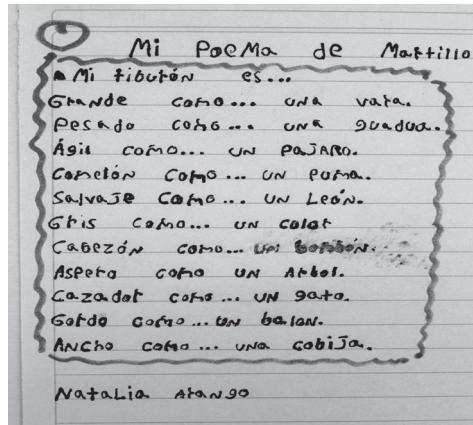 Mi Poema de Martillo
Mi tiburón es...
Grande como... una vara.
Pesado como... una guadua.
Ágil como... un pajaro.
Comelón como... un puma.
Salvaje como... un León.
Gris como... un color
Cabezón como... un bombón.
Aspero como un Arbol.
Cazador como... un gato.
Gordo como... un balon.
Ancho como... una cobija.
Natalia Arango